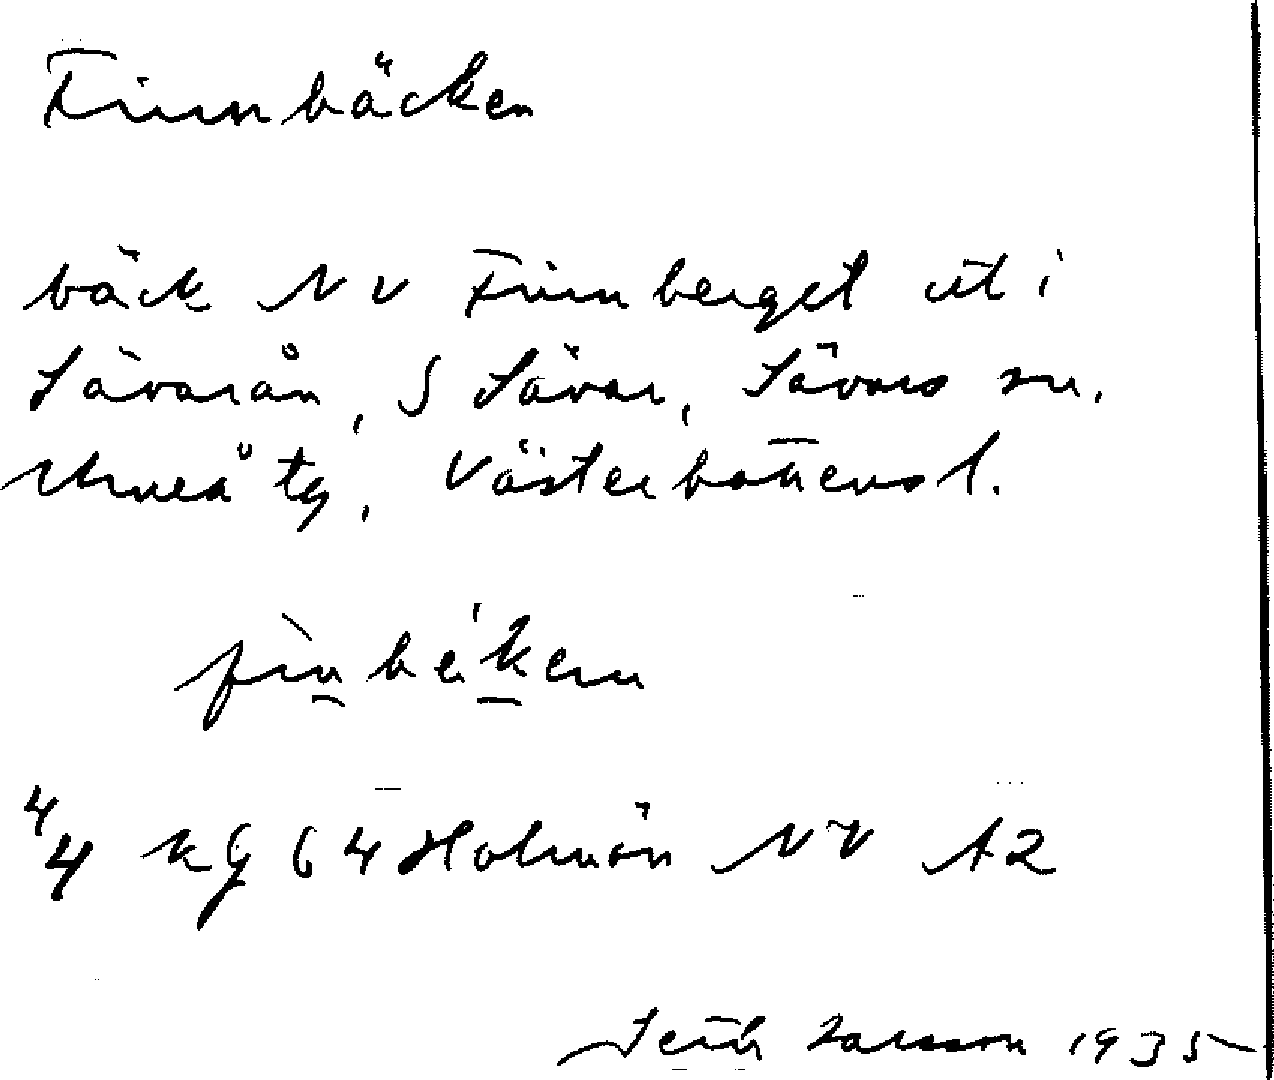 Finnbäcken
bäck NV Finnberget ut i
Sävarån, S Sävar, Sävars sn.
Umeå tg, Västerbottens l.
fìn be ́ken
4/4 kg 64 Holmön NV A2
Seth Larsson 1935